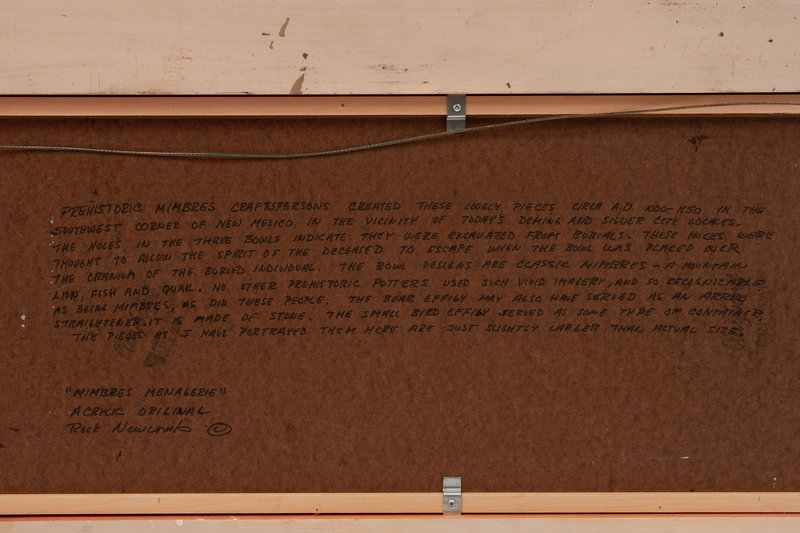 PREHISTORIC MIMBRES CRAFTSPERSONS CREATED THESE LOVELY PIECES CIRCA A.D. 1000-1150 IN THE
SOUTHWEST CORNER OF NEW MEXICO IN THE VICINITY OF TODAY'S DEMING AND SILVER CITY LOCALES.
THE HOLES IN THE THREE BOWLS INDICATE THEY WERE EXCAVATED FROM BURIALS. THESE HOLES WERE
THOUGHT TO ALLOW THE SPIRIT OF THE DECEASED TO ESCAPE WHEN THE BOWL WAS PLACED OVER
THE CRANIUM OF THE BURIED INDIVIDUAL. THE BOWL DESIGNS ARE CLASSIC MIMBRES - A MOUNTAIN
LION, FISH AND QUAIL. NO OTHER PREHISTORIC POTTERS USED SUCH VIVID IMAGERY, AND SO RECOGNIZABLE
AS BEING MIMBRES, AS DID THESE PEOPLE. THE BEAR EFFIGY MAY ALSO HAVE SERVED AS AN ARROW
STRAIGHTENER. IT IS MADE OF STONE. THE SMALL BIRD EFFIGY SERVED AS SOME TYPE OF CONTAINER.
THE PIECES AS I HAVE PORTRAYED THEM HERE ARE JUST SLIGHTLY LARGER THAN ACTUAL SIZE.
"MIMBRES MENAGERIE"
ACRYLIC ORIGINAL
Rock Newcomb ©